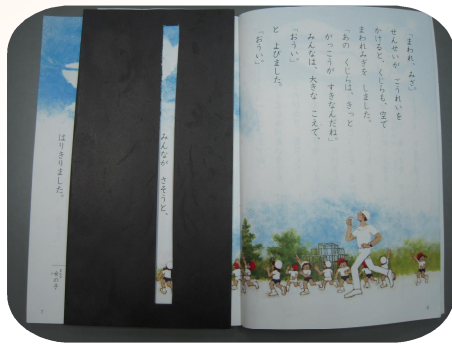 「まわれ、みぎ」。
せんせいが ごうれいを
かけると、くじらも、空で
まわれみぎを しました。
「あの くじらは、きっと
がっこうが すきなんだね。」
みんなは、大きな こえで、
「おうい。」
と よびました。
「おうい。」
みんなが さそうと、
はりきりました。